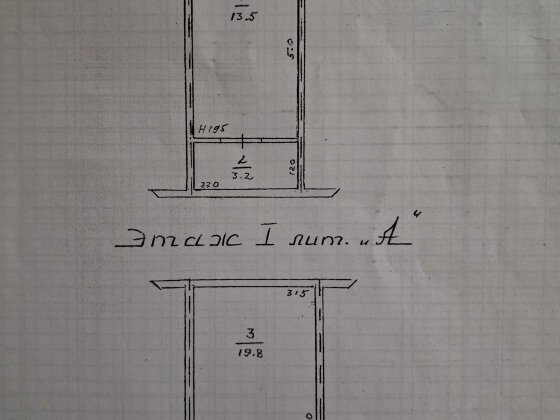 13.5
5.0
H195
2
3.2
1.20
2.70
Этаж I лит. „А“
3.15
3
19.8